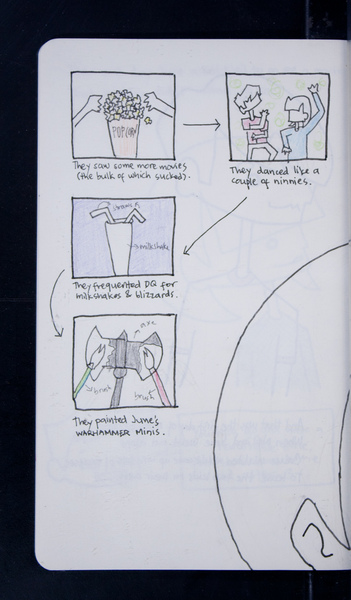 POPCORN
They saw some more movies
(the bulk of which sucked).
They danced like a
couple of ninnies.
straws
milkshake
They frequented DQ for
milkshakes & blizzards.
axe
brush
brush
They painted June's
WARHAMMER Minis.
2